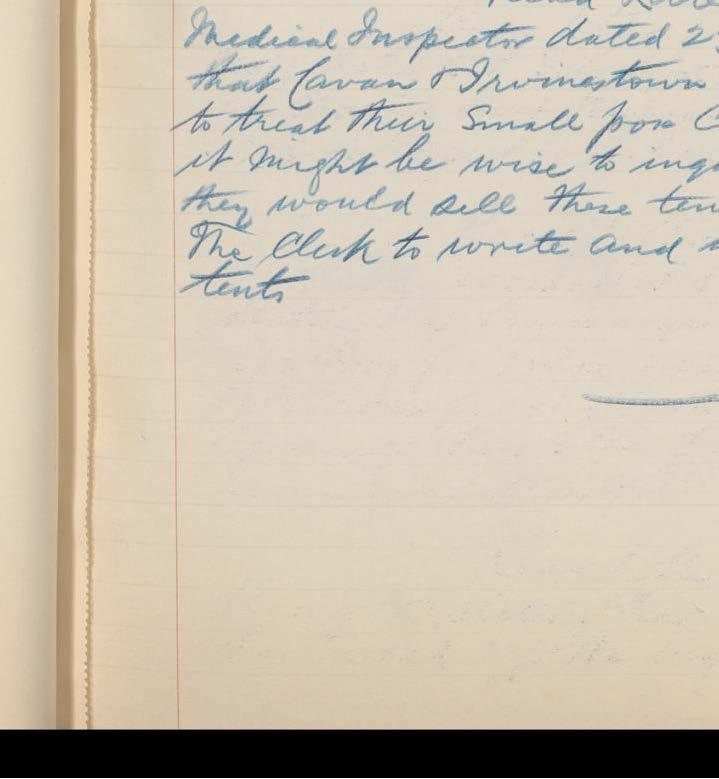 Medical Inspector dated 2
that Cavan & Irvinestown
to treat their Small pox C
it might be wise to inq
they would sell these ten
The Clerk to write and
tents